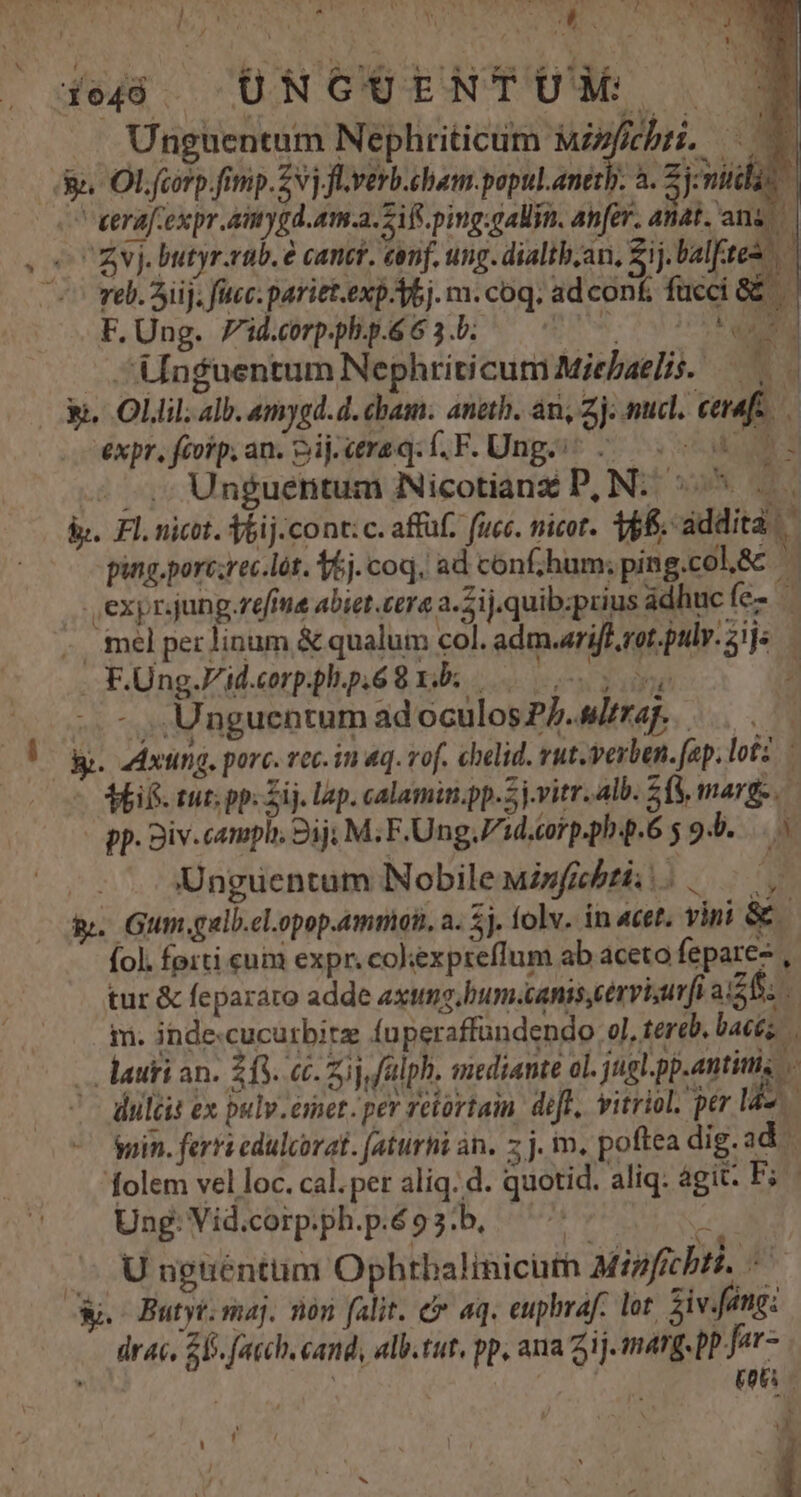 1040 UNGUENTUM
Unguentum Nephriticum Minſichti.
℞. Ol. ſcorp. ſimp. ʒvj. fl. verb. cham. popul. aneth. a. ʒj. nucl.
ceraſ. expr. amygd. am. a. ʒiß. ping. gallin. anſer. anat. ana
ʒvj. butyr. rub. è cancr. conf. ung. dialth. an, ʒij. balſ.
reb. ʒiij. ſucc. pariet. exp. ℔j. m. coq. ad conſ. ſucci &
F. Ung. Vid. corp. ph. p. 663. b.
Unguentum Nephriticum Michaelis.
℞. Ol. lil. alb. amygd. d. cham. aneth. an, ʒj. nucl. ceraſ.
expr. ſcorp. an. ℈ij. ceræ q. ſ. F. Ung.
Unguentum Nicotianæ P. N.
℞. Fl. nicot. ℔ij. cont. c. affuſ. ſucc. nicot. ℔ß. addita
ping. porc. rec. lot. ℔j. coq. ad conſ. hum. ping. col. &
expr. jung. reſinæ abiet. ceræ a. ʒij. quib. prius adhuc ſe-
mel per linum & qualum col. adm. ariſt. rot. pulv. ʒij.
F. Ung. Vid. corp. ph. p. 681. b.
Unguentum ad oculos Ph. ultraj.
℞. Axung. porc. rec. in aq. roſ. chelid. rut. verben. ſap. lot.
℔iß. tut. pp. ʒij. lap. calamin. pp. ʒj. vitr. alb. ʒß. marg.
pp. ℈iv. camph. ℈ij. M. F. Ung. Vid. corp. ph. p. 659. b.
Unguentum Nobile Minſichti.
℞. Gum. galb. el. opop. ammon. a. ʒj. ſolv. in acet. vini &
ſol. forti cum expr. col. expreſſum ab aceto ſepare-
tur & ſeparato adde axung. hum. canis, cervi, urſi a. ʒß.
m. inde cucurbitæ ſuperaffundendo ol. tereb. bacc.
lauri an. ʒß. cc. ʒij. ſulph. mediante ol. jugl. pp. antim.
dulcis ex pulv. emet. per retortam deſt. vitriol. per
min. ferri edulcorat. ſaturni an. ʒj. m, poſtea dig. ad
ſolem vel loc. cal. per aliq. d. quotid. aliq. agit. F.
Ung. Vid. corp. ph. p. 693. b,
Unguentum Ophthalmicum Minſichti.
℞. Butyr. maj. non ſalit. & aq. euphraſ. lot ʒiv. ſang.
drac. ʒß. ſacch. cand, alb. tut. pp, ana ʒij. marg. pp. ſar-
coti